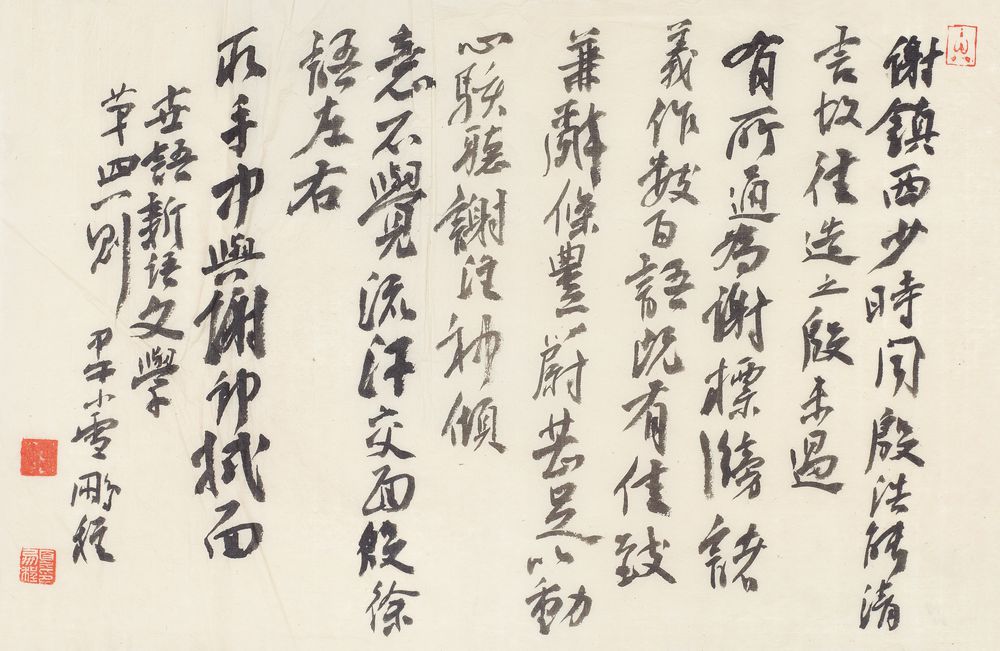 謝鎮西少時聞殷浩能清
言故往造之殷未過
有所通為謝標牓諸
義作數百語既有佳致
兼辭條豐蔚甚足以動
心駭聽謝注神傾
意不覺流汗交面殷徐
語左右
取手巾與謝郎拭面
世說新語文學
第四一則
甲午小雪鵬程